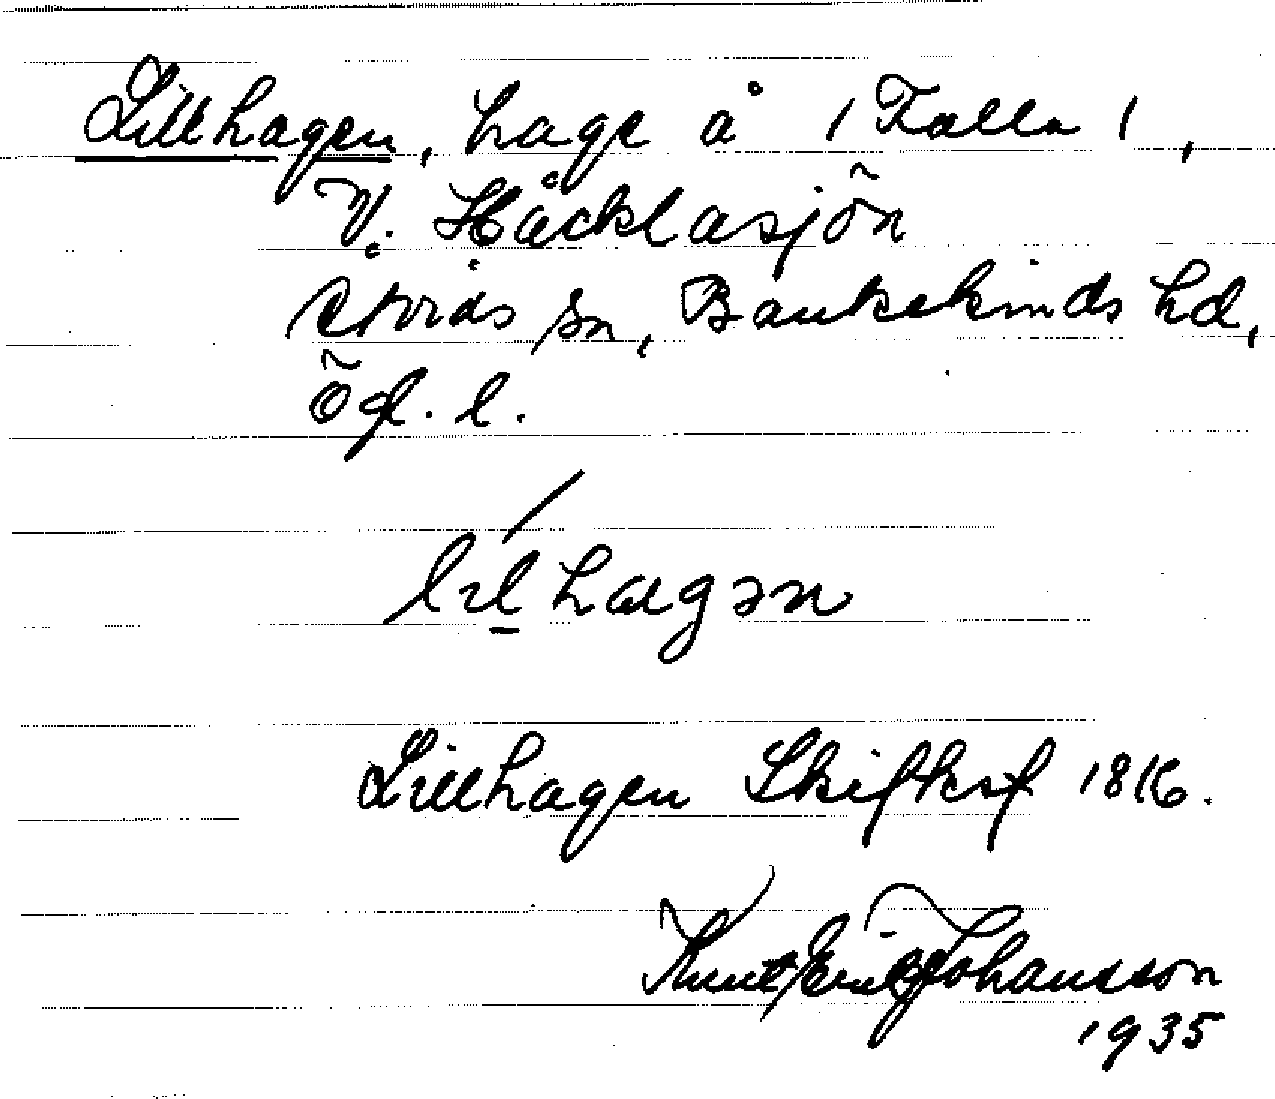 Lillhagen, hage å / Falla /,
V. Häcklasjön
Åtvids sn, Bankekinds hd,
Ögl. l.
lılhagən
Lillhagen Skifksf 1816.
Knut Erik Johansson
1935